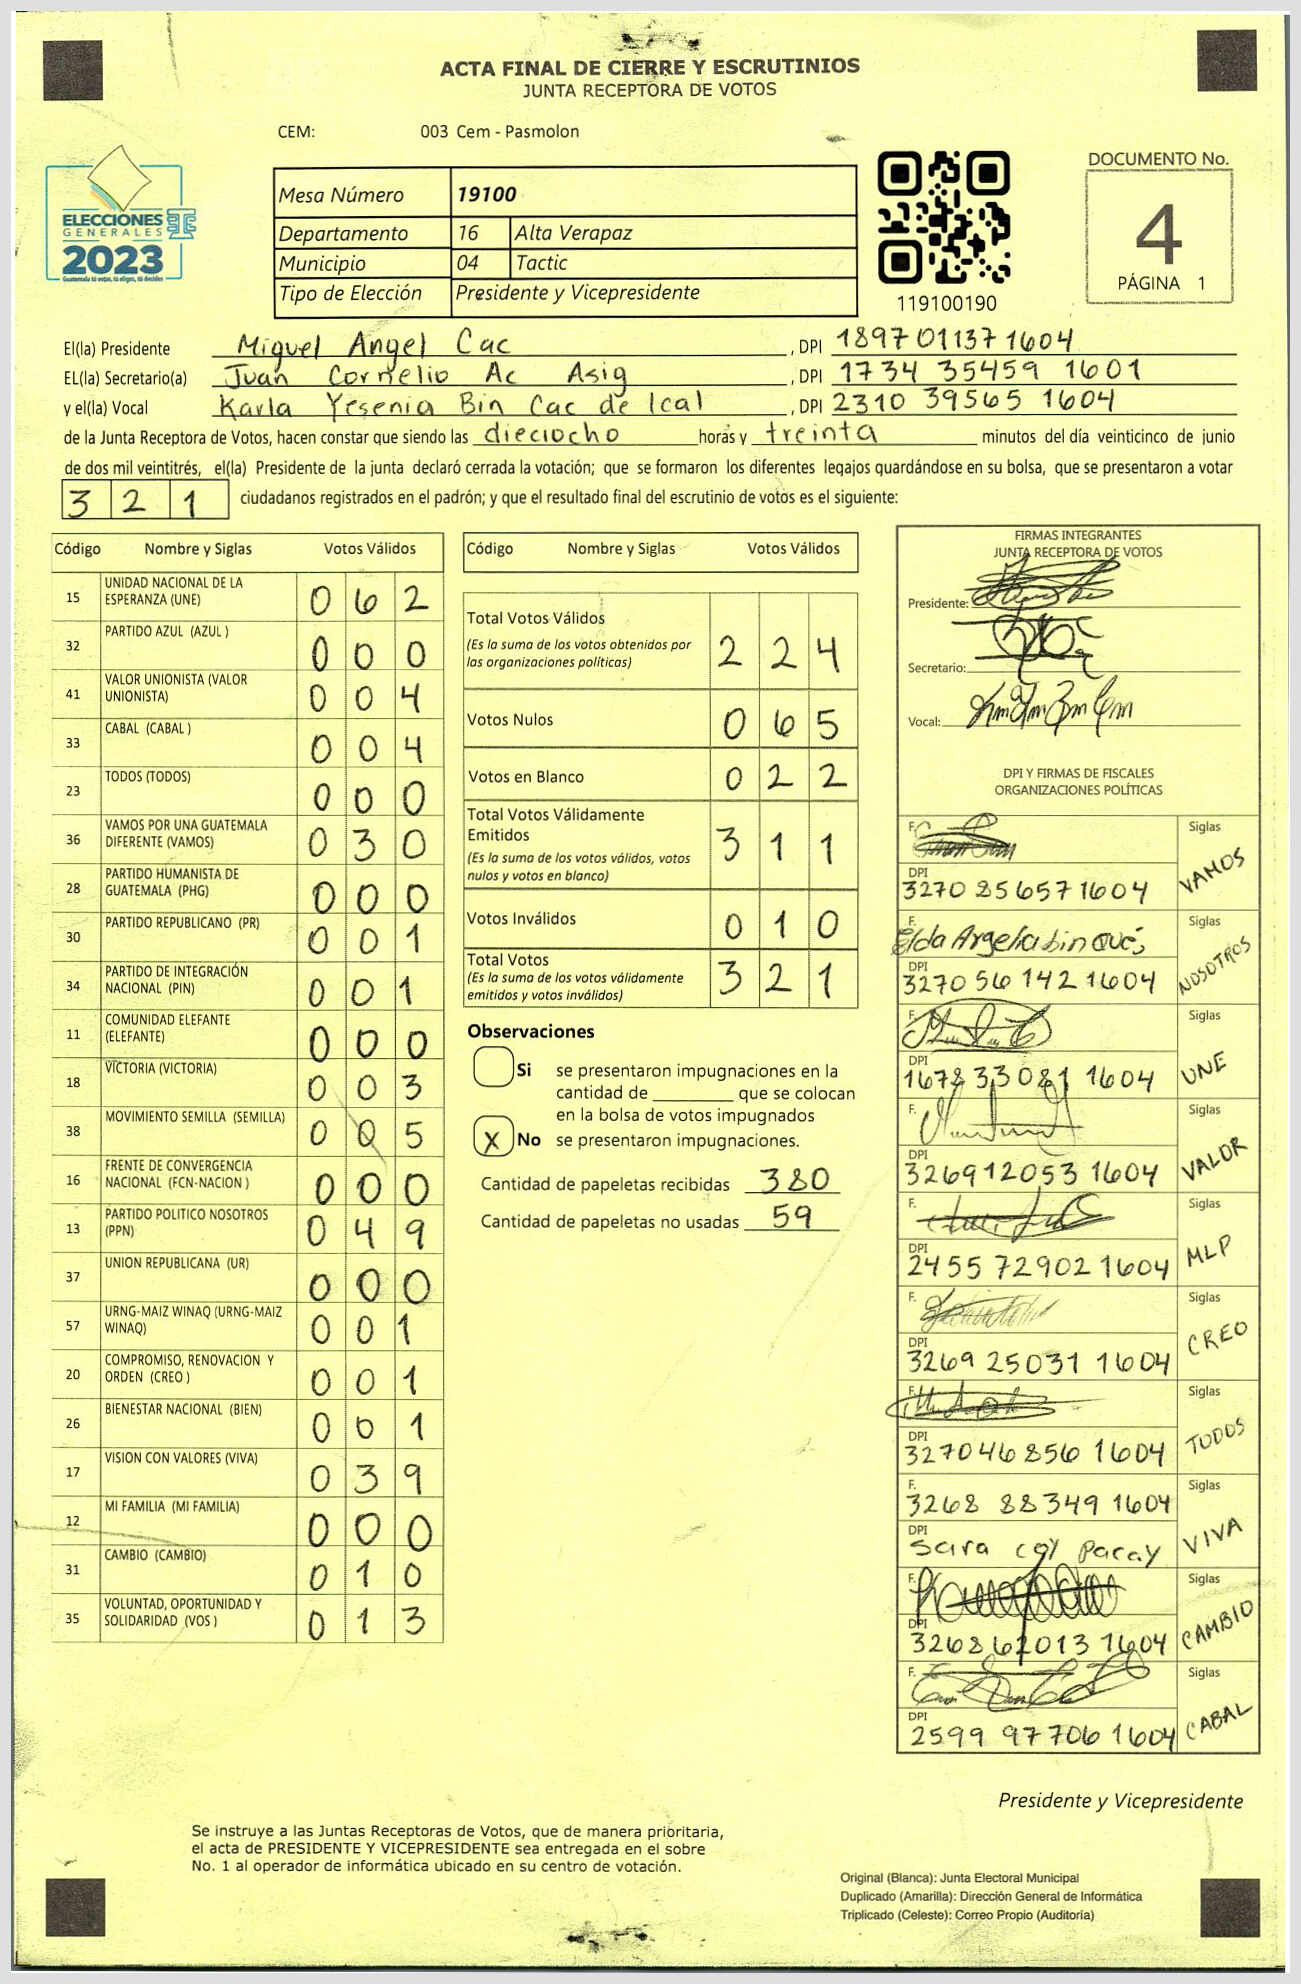 ACTA FINAL DE CIERRE Y ESCRUTINIOS
JUNTA RECEPTORA DE VOTOS
CEM: 003 Cem - Pasmolon
ELECCIONES
GENERALES
2023
Guatemala tú votas, tú eliges, tú decides
Mesa Número 19100
Departamento 16 Alta Verapaz
Municipio 04 Tactic
Tipo de Elección Presidente y Vicepresidente
119100190
DOCUMENTO No.
4
PÁGINA 1
El(la) Presidente Miguel Angel Cac , DPI 1897 01137 1604
EL(la) Secretario(a) Juan Cornelio Ac Asig , DPI 1734 35459 1601
y el(la) Vocal Karla Yesenia Bin Cac de Ical , DPI 2310 39565 1604
de la Junta Receptora de Votos, hacen constar que siendo las dieciocho horas y treinta minutos del día veinticinco de junio
de dos mil veintitrés, el(la) Presidente de la junta declaró cerrada la votación; que se formaron los diferentes legajos quardándose en su bolsa, que se presentaron a votar
321 ciudadanos registrados en el padrón; y que el resultado final del escrutinio de votos es el siguiente:
Código Nombre y Siglas Votos Válidos
15 UNIDAD NACIONAL DE LA ESPERANZA (UNE) 062
32 PARTIDO AZUL (AZUL ) 000
41 VALOR UNIONISTA (VALOR UNIONISTA) 004
33 CABAL (CABAL ) 004
23 TODOS (TODOS) 000
36 VAMOS POR UNA GUATEMALA DIFERENTE (VAMOS) 030
28 PARTIDO HUMANISTA DE GUATEMALA (PHG) 000
30 PARTIDO REPUBLICANO (PR) 001
34 PARTIDO DE INTEGRACIÓN NACIONAL (PIN) 001
11 COMUNIDAD ELEFANTE (ELEFANTE) 000
18 VICTORIA (VICTORIA) 003
38 MOVIMIENTO SEMILLA (SEMILLA) 005
16 FRENTE DE CONVERGENCIA NACIONAL (FCN-NACION ) 000
13 PARTIDO POLITICO NOSOTROS (PPN) 049
37 UNION REPUBLICANA (UR) 000
57 URNG-MAIZ WINAQ (URNG-MAIZ WINAQ) 001
20 COMPROMISO, RENOVACION Y ORDEN (CREO ) 001
26 BIENESTAR NACIONAL (BIEN) 001
17 VISION CON VALORES (VIVA) 039
12 MI FAMILIA (MI FAMILIA) 000
31 CAMBIO (CAMBIO) 010
35 VOLUNTAD, OPORTUNIDAD Y SOLIDARIDAD (VOS ) 013
Código Nombre y Siglas Votos Válidos
Total Votos Válidos 224
(Es la suma de los votos obtenidos por
las organizaciones políticas)
Votos Nulos 065
Votos en Blanco 022
Total Votos Válidamente
Emitidos 311
(Es la suma de los votos válidos, votos
nulos y votos en blanco)
Votos Inválidos 010
Total Votos 321
(Es la suma de los votos válidamente
emitidos y votos inválidos)
Observaciones
Si se presentaron impugnaciones en la
cantidad de ________ que se colocan
en la bolsa de votos impugnados
X No se presentaron impugnaciones.
Cantidad de papeletas recibidas 380
Cantidad de papeletas no usadas 59
FIRMAS INTEGRANTES
JUNTA RECEPTORA DE VOTOS
Presidente:
Secretario:
Vocal:
DPI Y FIRMAS DE FISCALES
ORGANIZACIONES POLÍTICAS
F. Siglas
DPI 3270 85657 1604 VAMOS
F. Elda Argelia bin Siglas
DPI 3270 56 142 1604 NOSOTROS
F. Siglas
DPI 1678 33081 1604 UNE
F. Siglas
DPI 3269 12053 1604 VALOR
F. Siglas
DPI 2455 72902 1604 MLP
F. Siglas
DPI 3269 25031 1604 CREO
F. Siglas
DPI 3270 46 856 1604 TODOS
F. 3268 88349 1604 Siglas
DPI Sara coy pacay VIVA
F. Siglas
DPI 3268 62013 1604 CAMBIO
F. Siglas
DPI 2599 97706 1604 CABAL
Presidente y Vicepresidente
Se instruye a las Juntas Receptoras de Votos, que de manera prioritaria,
el acta de PRESIDENTE Y VICEPRESIDENTE sea entregada en el sobre
No. 1 al operador de informática ubicado en su centro de votación.
Original (Blanca): Junta Electoral Municipal
Duplicado (Amarilla): Dirección General de Informática
Triplicado (Celeste): Correo Propio (Auditoría)